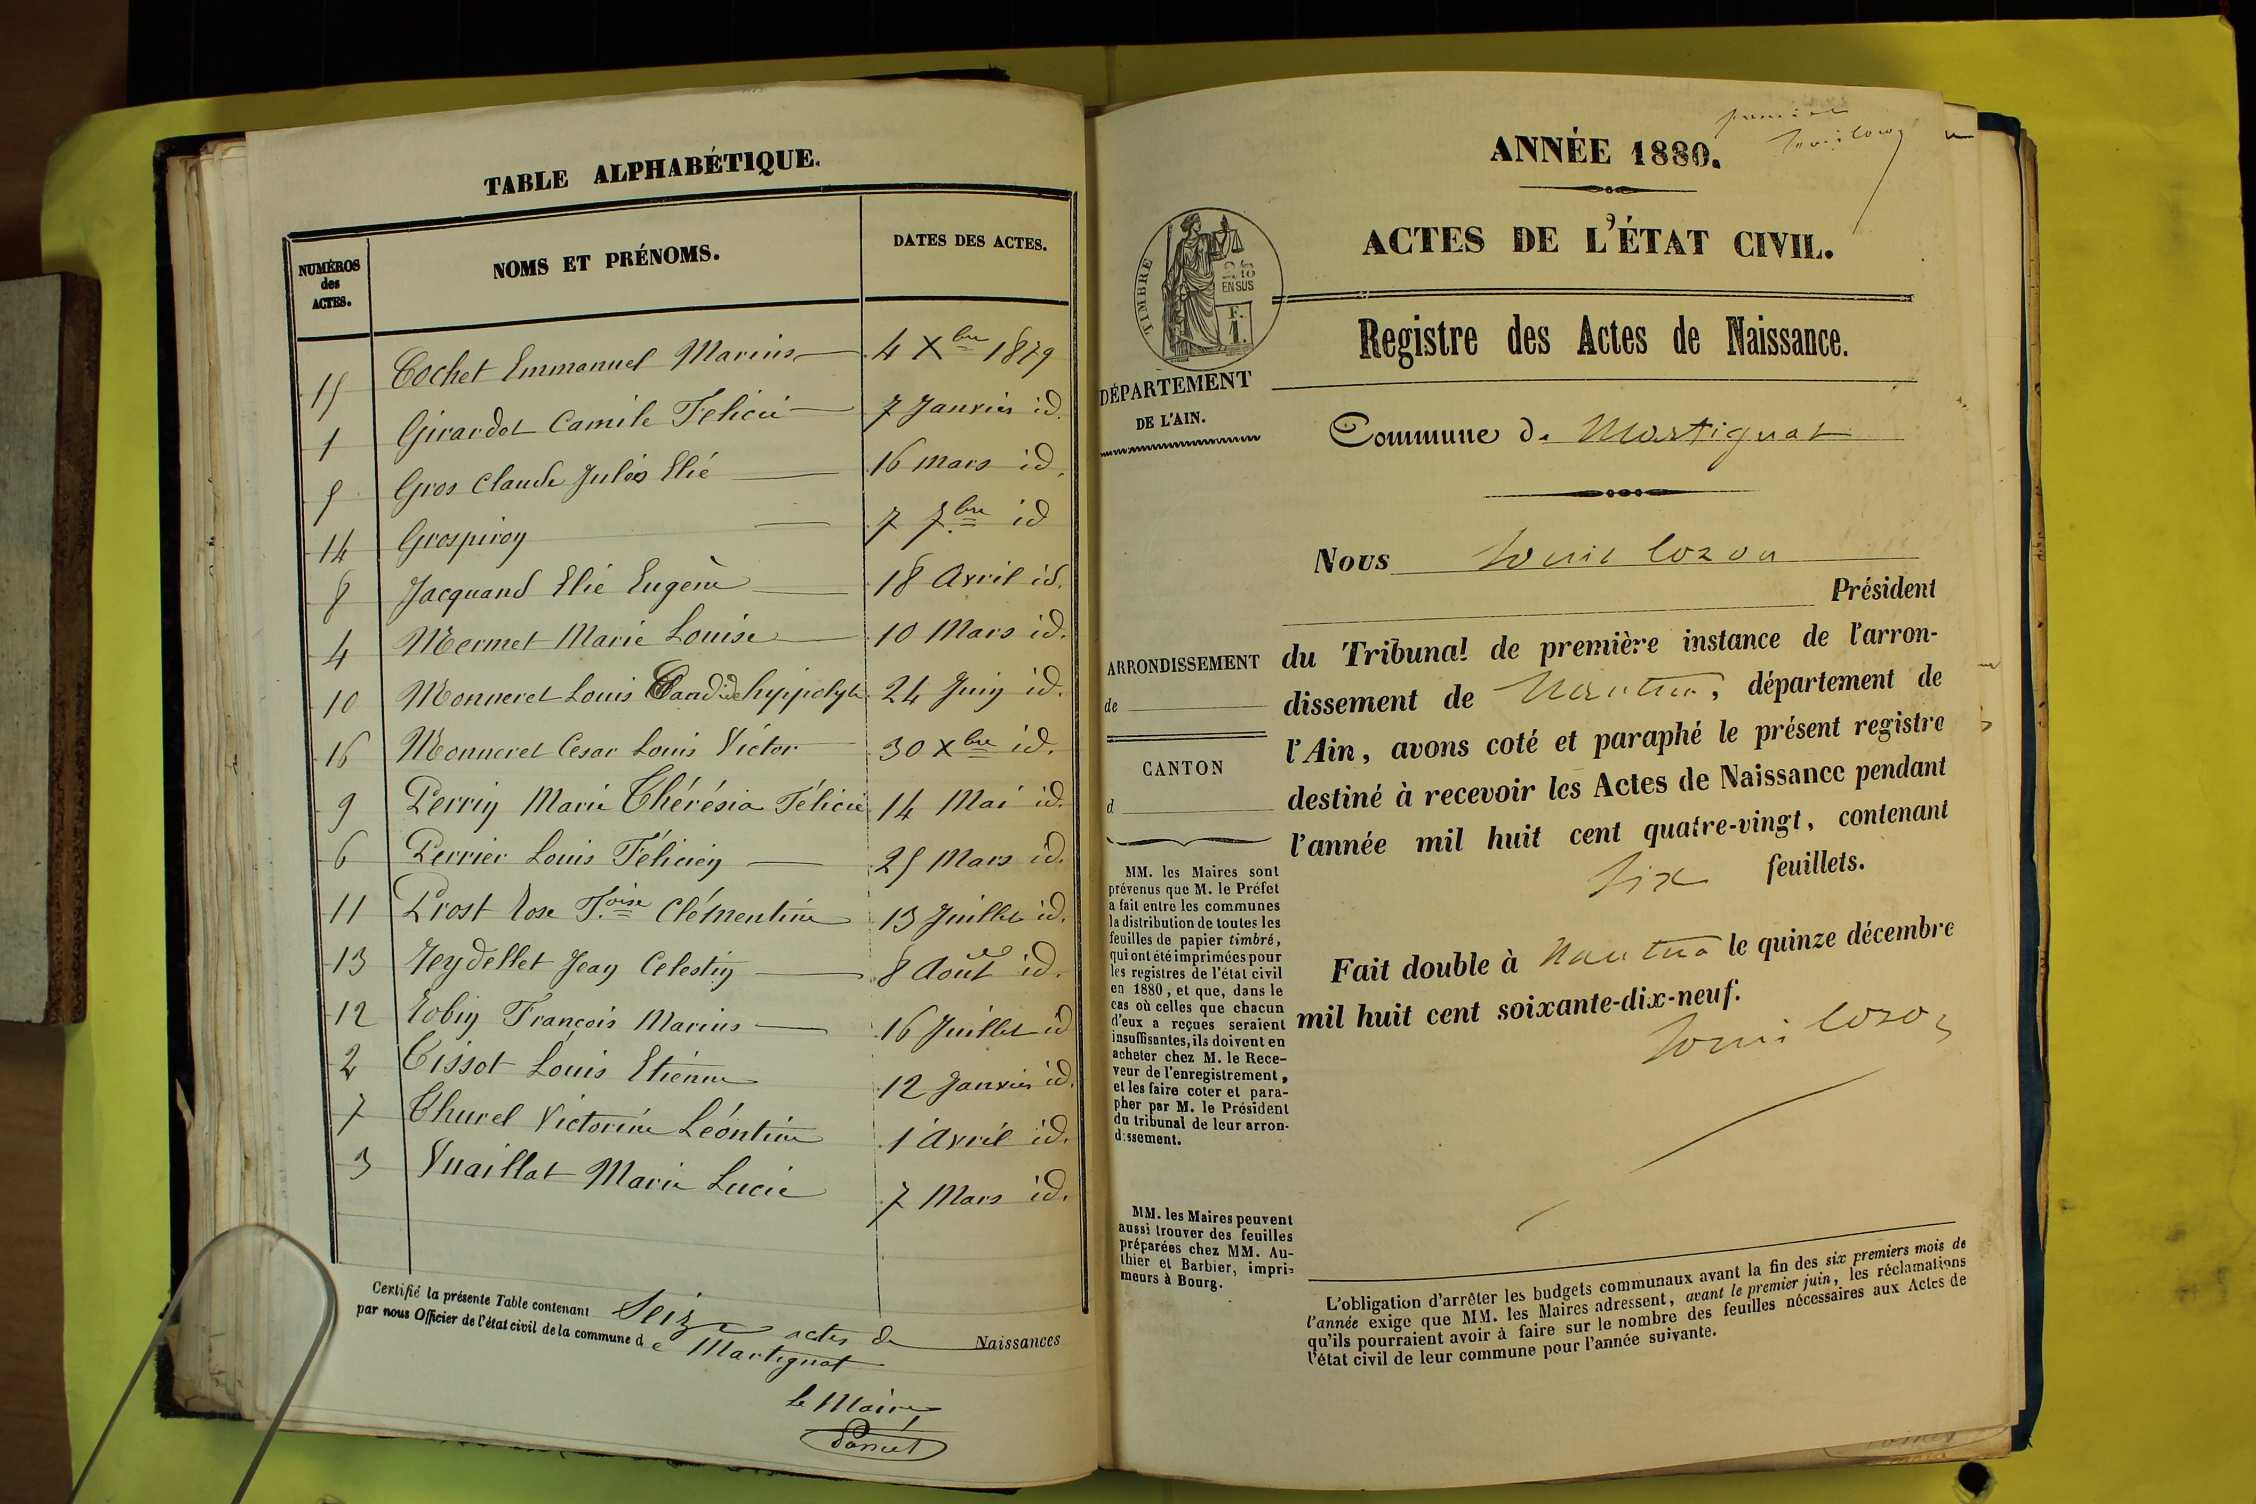 TABLE ALPHABÉTIQUE.
NUMÉROS des ACTES.
NOMS ET PRÉNOMS.
DATES DES ACTES.
15 Cochet Emmanuel Marius 4 Xbre 1879
1 Girardot Camile Felicie 7 Janvier id.
5 Gros Claude Jules Elié 16 mars id.
14 Grospiroy 7 7bre id
8 Jacquand Elie Eugène 18 Avril id.
4 Mermet Marie Louise 10 Mars id.
10 Monneret Louis Candide hyppolyte 24 Juin id.
16 Monneret Cesar Louis Victor 30 Xbre id.
9 Perrin Marie Thérésia Félicie 14 Mai id.
6 Perrier Louis Félicien 25 Mars id.
11 Prost Rose Foise Clémentine 13 Juillet id.
13 Reydellet Jean Celestin 8 Août id.
12 Robin François Marius 16 Juillet id
2 Tissot Louis Etienne 12 Janvier id.
7 Thurel Victorine Léontine 1 Avril id.
3 Vuaillat Marie Lucie 7 Mars id.
Certifié la présente Table contenant Seize actes de Naissances
par nous Officier de l'état civil de la commune de Martignat
le Maire
ANNÉE 1880.
ACTES DE L'ÉTAT CIVIL.
TIMBRE
2/10
EN SUS
F.
1.
Registre des Actes de Naissance.
DÉPARTEMENT
DE L'AIN.
Commune de Martignat
Nous
Président
du Tribunal de première instance de l'arron-
dissement de Nantua, département de
l'Ain, avons coté et paraphé le présent registre
destiné à recevoir les Actes de Naissance pendant
l'année mil huit cent quatre-vingt, contenant
six feuillets.
Fait double à Nantua le quinze décembre
mil huit cent soixante-dix-neuf.
ARRONDISSEMENT
de
CANTON
d
MM. les Maires sont
prévenus que M. le Préfet
a fait entre les communes
la distribution de toutes les
feuilles de papier timbré,
qui ont été imprimées pour
les registres de l'état civil
en 1880, et que, dans le
cas où celles que chacun
d'eux a reçues seraient
insuffisantes, ils doivent en
acheter chez M. le Rece-
veur de l'enregistrement,
et les faire coter et para-
pher par M. le Président
du tribunal de leur arron-
dissement.
MM. les Maires peuvent
aussi trouver des feuilles
préparées chez MM. Au-
thier et Barbier, impri-
meurs à Bourg.
L'obligation d'arrêter les budgets communaux avant la fin des six premiers mois de
l'année exige que MM. les Maires adressent, avant le premier juin, les réclamations
qu'ils pourraient avoir à faire sur le nombre des feuilles nécessaires aux Actes de
l'état civil de leur commune pour l'année suivante.